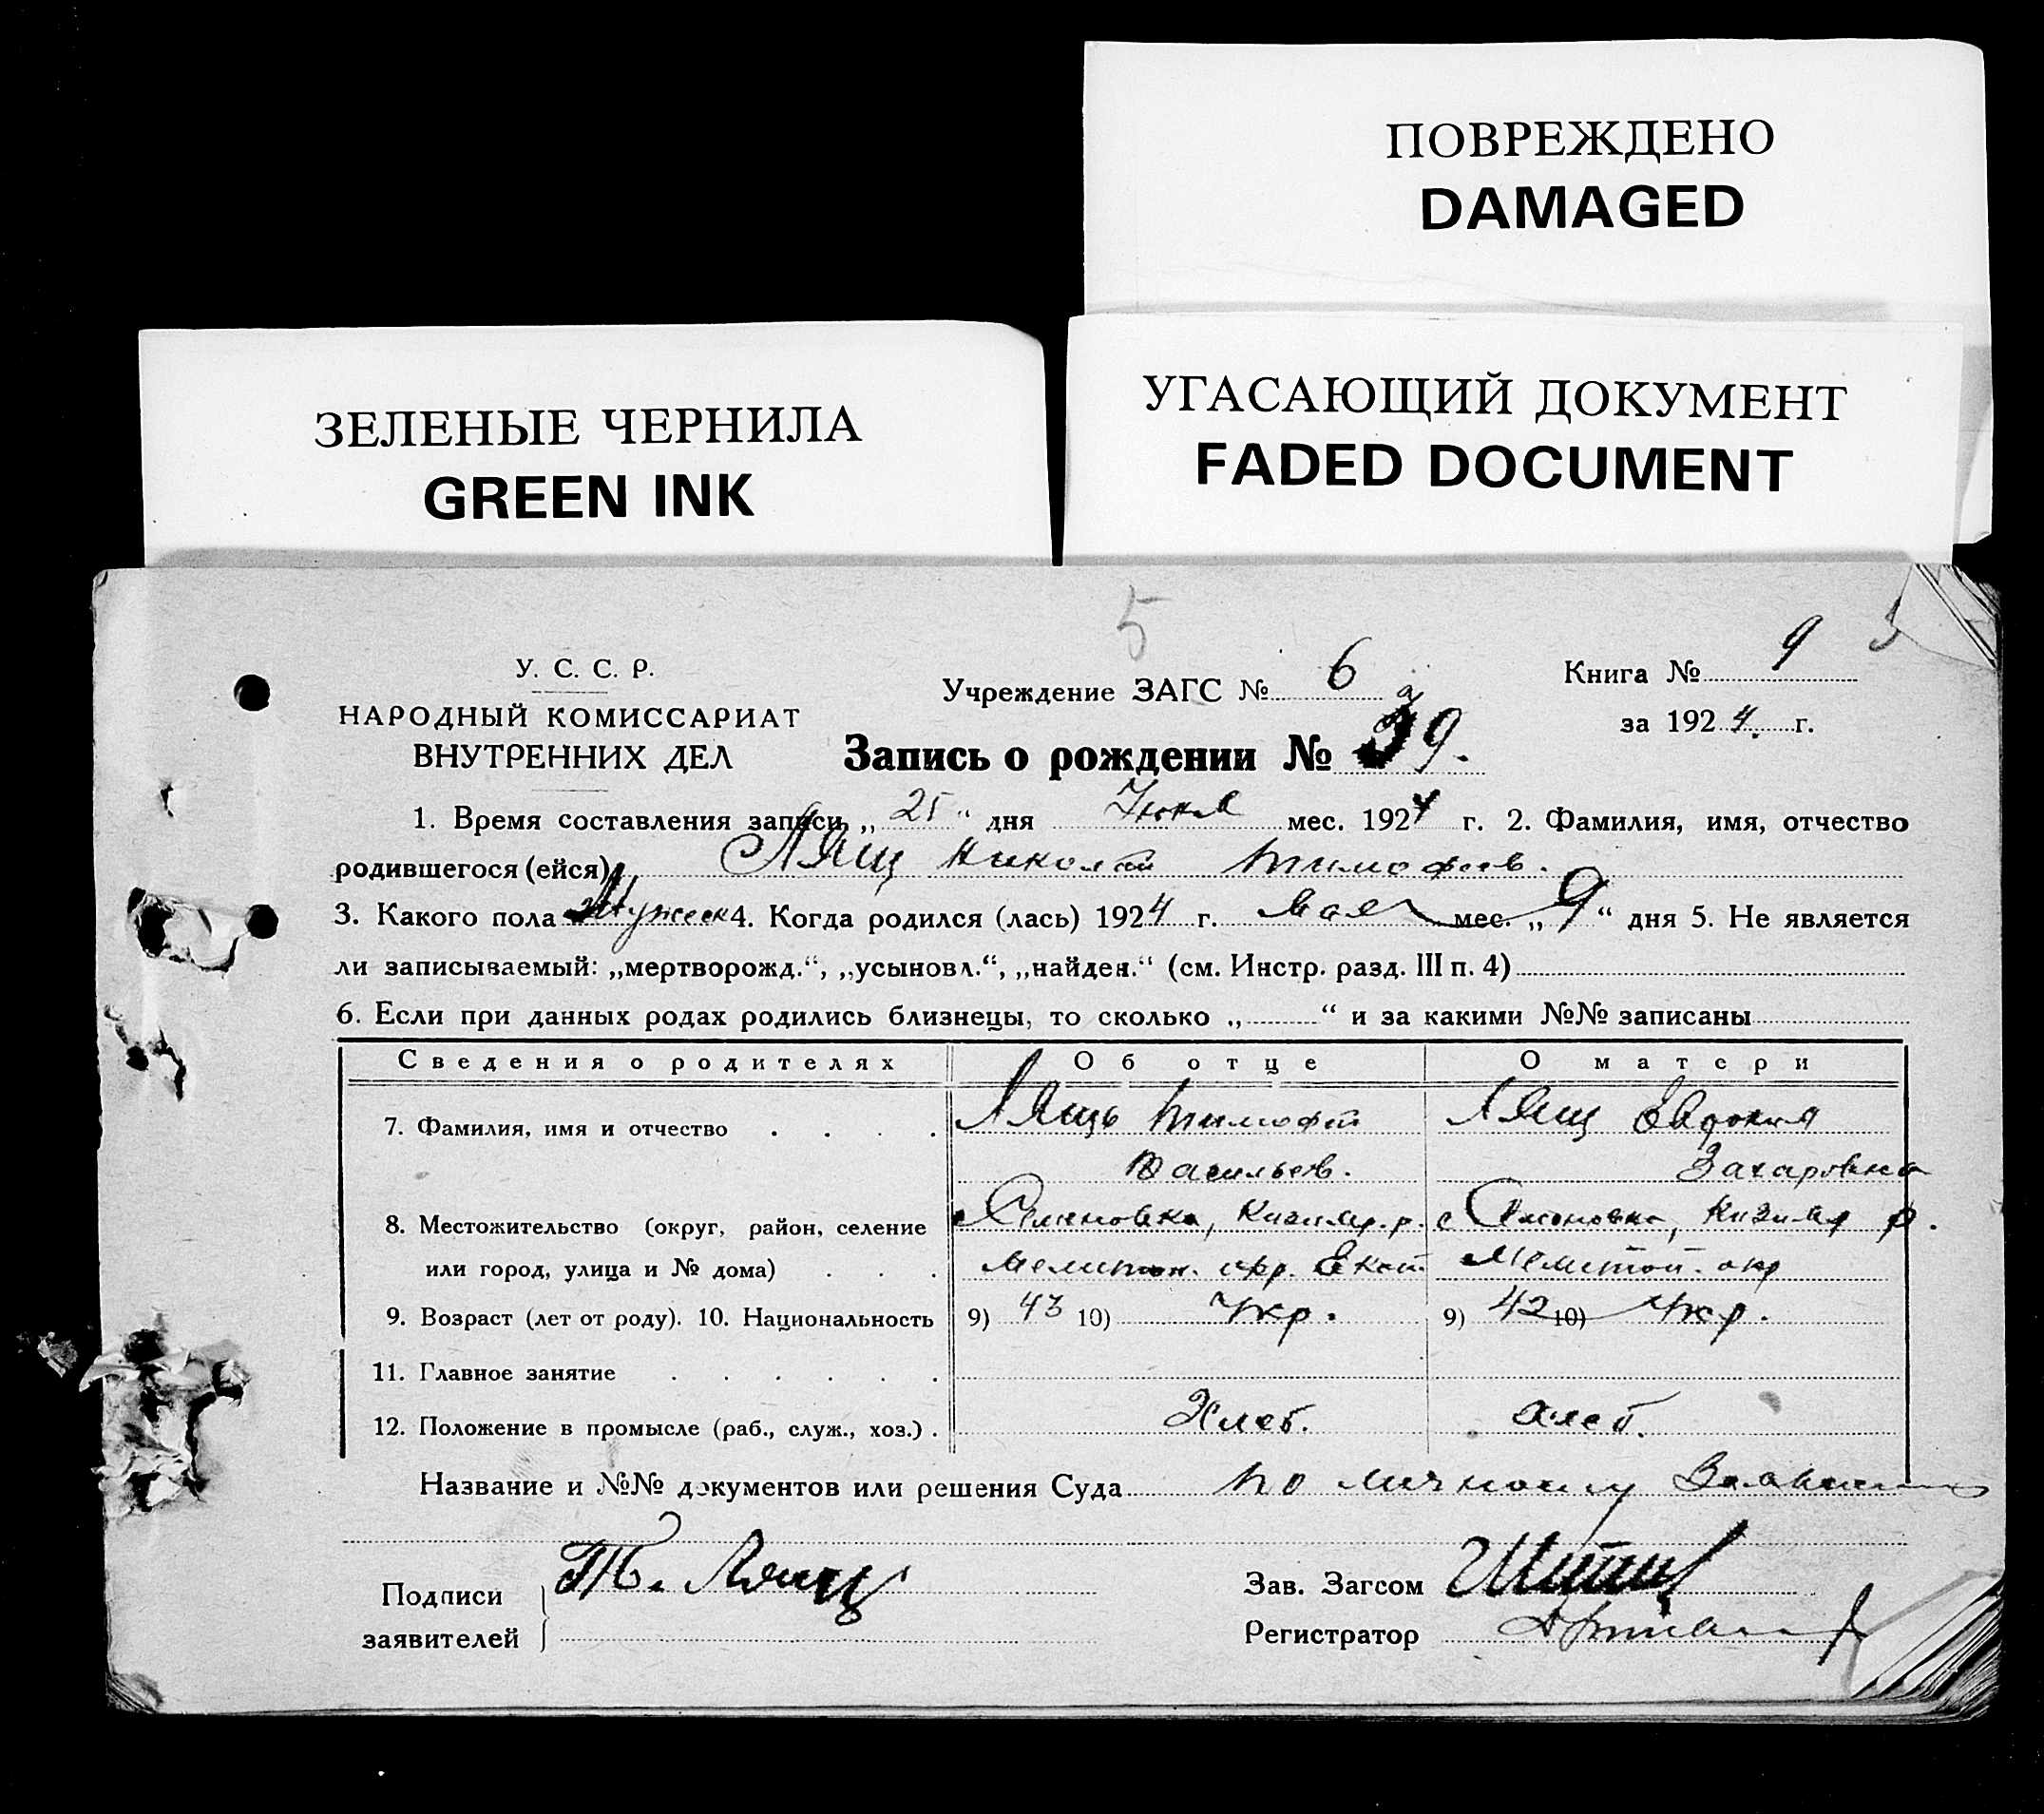 ПОВРЕЖДЕНО
DAMAGED
ЗЕЛЕНЫЕ ЧЕРНИЛА
GREEN INK
УГАСАЮЩИЙ ДОКУМЕНТ
FADED DOCUMENT
5
У. С. С. Р.
НАРОДНЫЙ КОМИССАРИАТ
ВНУТРЕННИХ ДЕЛ
Учреждение ЗАГС № 6
Книга № 9
за 1924 г.
Запись о рождении № 39.
1. Время составления записи „25“ дня Июня мес. 1924 г. 2. Фамилия, имя, отчество
родившегося (ейся) Лящ Николай Тимофеев.
3. Какого пола Мужеск 4. Когда родился (лась) 1924 г. Мая мес. „9“ дня 5. Не является
ли записываемый: „мертворожд.“, „усыновл.“, „найден.“ (см. Инстр. разд. III п. 4)
6. Если при данных родах родились близнецы, то сколько „ “ и за какими №№ записаны
Сведения о родителях Об отце О матери
7. Фамилия, имя и отчество Лящь Тимофей Лящ Евдокия
Васильев. Захаровна
8. Местожительство (округ, район, селение с Семеновка, Кизияр. р. с Семеновка, Кизияр р.
или город, улица и № дома) Мелитоп. окр. Екат. Мелитоп. окр
9. Возраст (лет от роду). 10. Национальность 9) 43 10) Укр. 9) 42 10) Укр.
11. Главное занятие
12. Положение в промысле (раб., служ., хоз.) Хлеб. хлеб.
Название и №№ документов или решения Суда по личному
Подписи
заявителей
Т. Лящ
Зав. Загсом
Регистратор